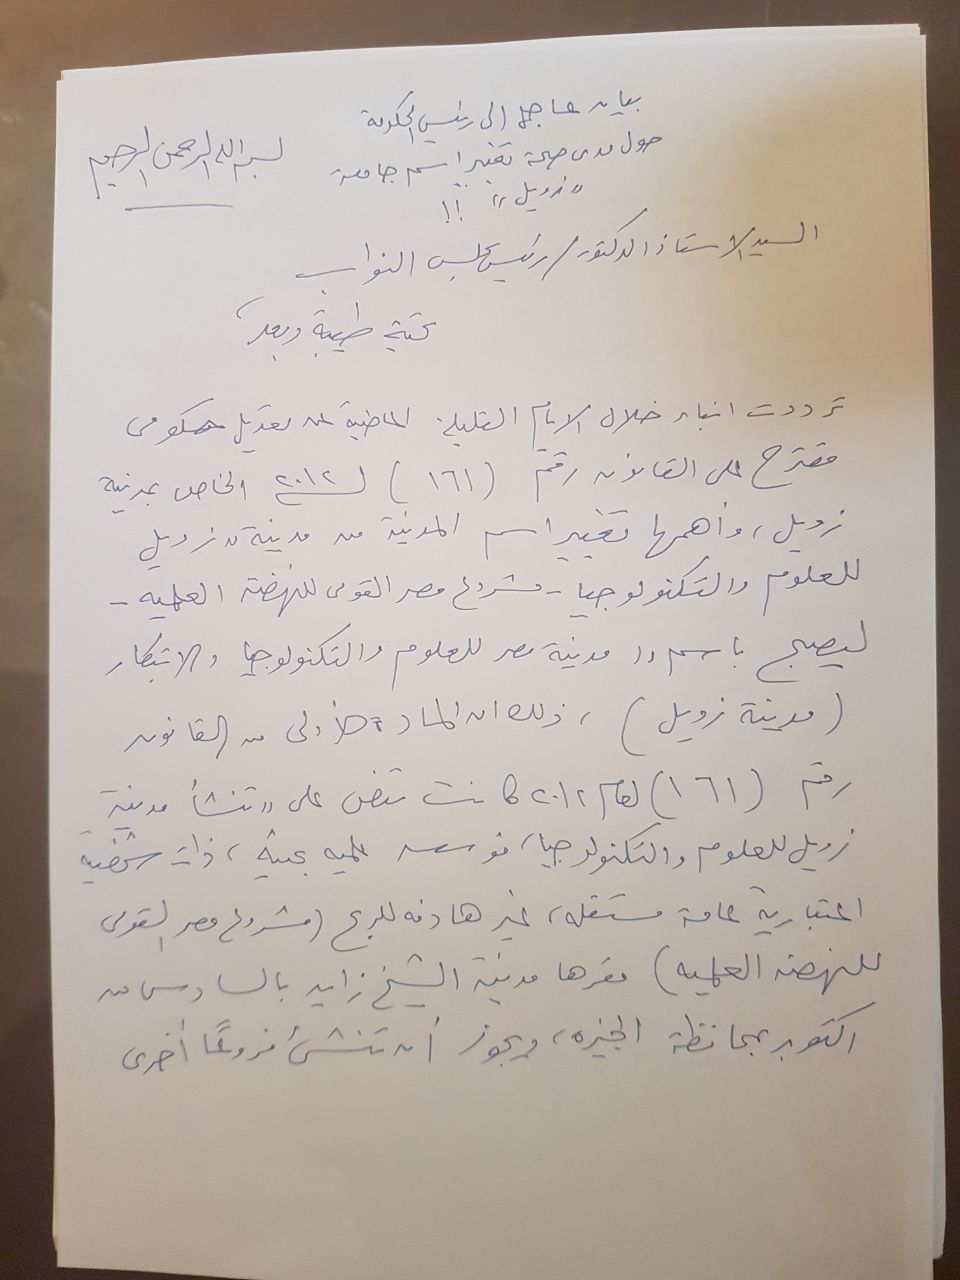 بسم الله الرحمن الرحيم
بيان عاجل إلى رئيس الحكومة
حول مدى صحة تغيير اسم جامعة
"زويل" !!
السيد الاستاذ الدكتور / رئيس مجلس النواب
تحية طيبة وبعد،
ترددت انباء خلال الايام القليلة الماضية عن تعديل حكومى
مقترح على القانون رقم (١٦١) لسنة ٢٠١٢ الخاص بمدينة
زويل، وأهمها تغيير اسم المدينة من مدينة " زويل
للعلوم والتكنولوجيا - مشروع مصر القومى للنهضة العلميه -
ليصبح باسم " مدينة مصر للعلوم والتكنولوجيا والابتكار
(مدينة زويل) ، ذلك ان المادة الأولى من القانون
رقم (١٦١) لعام ٢٠١٢ كانت تنص على " تنشأ مدينة
زويل للعلوم والتكنولوجيا، مؤسسه علميه بحثية، ذات شخصية
اعتبارية عامة مستقله، غير هادفه للربح (مشروع مصر القومى
للنهضه العلميه) مقرها مدينة الشيخ زايد بالسادس من
اكتوبر بمحافظة الجيزه، ويجوز أن تنشئ فروعًا أخرى